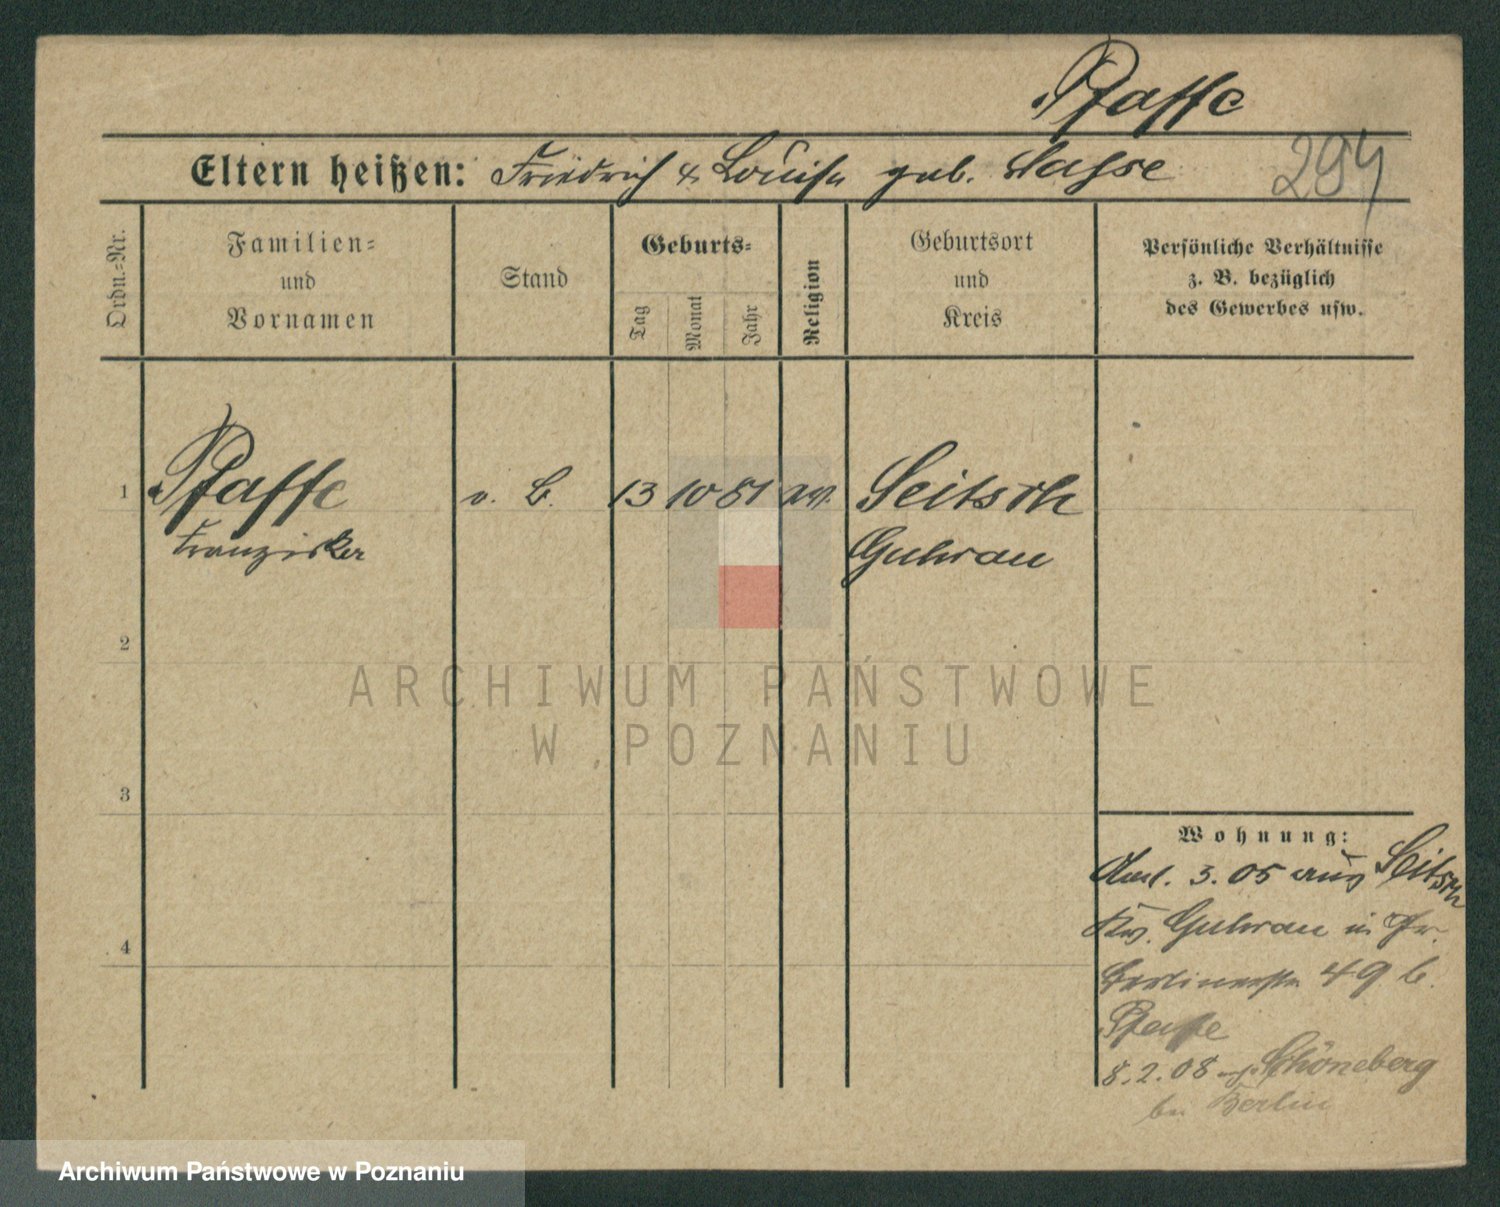 Pfaffe
Eltern heißen: Friedrich & Louise geb. Sasse
294
Ordn.=Nr.
Familien=
und
Vornamen
Stand
Geburts=
Tag
Monat
Jahr
Religion
Geburtsort
und
Kreis
Persönliche Verhältnisse
z. B. bezüglich
des Gewerbes usw.
1 Pfaffe o. B. 13 10 81 ev. Seitsch
Franziska Guhrau
2
ARCHIWUM PAŃSTWOWE
W POZNANIU
3
Wohnung:
3. 05 aus Seitsch
Kr. Guhrau in Pr.
Berlinerstr. 49 b.
Pfaffe
8.2.08 Schöneberg
bei Berlin
4
Archiwum Państwowe w Poznaniu